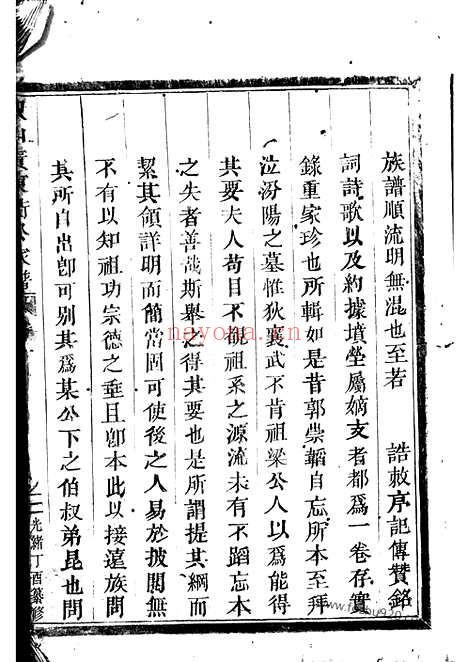 族譜順流明無混也至若　誥敕序記傳贊銘
詞詩歌以及約據墳塋屬嫡支者都爲一卷存實
錄重家珍也所輯如是昔郭崇韜自忘所本至拜
泣汾陽之墓惟狄襄武不肯祖梁公人以爲能得
其要夫人苟目不覩祖系之源流未有不蹈忘本
之失者善哉斯舉之得其要也是所謂提其綱而
絜其領詳明而簡當固可使後之人易於披閱無
不有以知祖功宗德之垂且卽本此以接遠族問
其所自出卽可別其爲某公下之伯叔弟昆也問
光緒丁酉纂修
nayona.cn